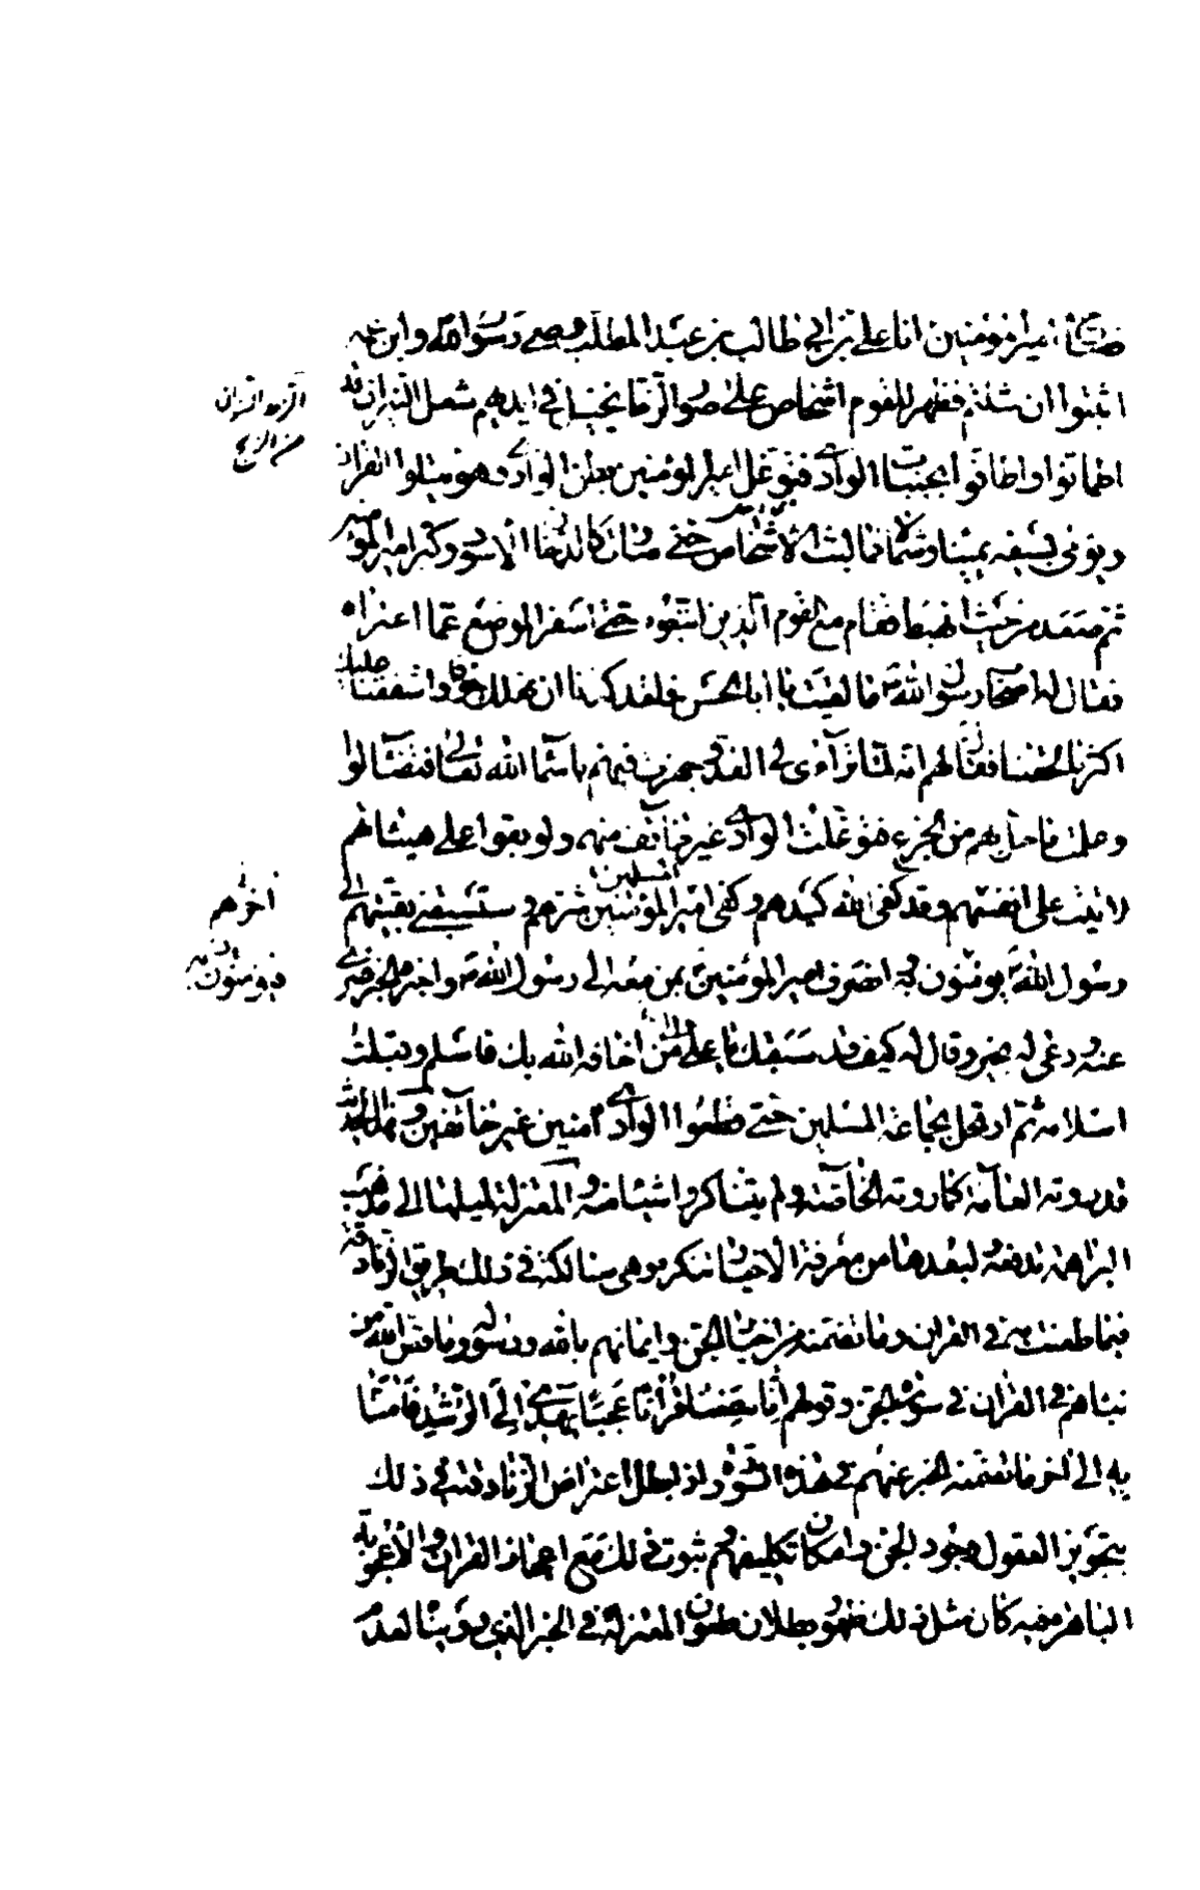 صاح امير المؤمنين انا على بن ابى طالب بن عبد المطلب وصى رسول الله وابن عمه
اثبتوا ان شئتم فظهر للقوم اشخاص على صور الزط يخيل فى ايديهم شعل النيران قد
اطمانوا واطافوا بجنبات الوادى فتوغل امير المؤمنين بطن الوادى وهو يتلوا القران
ويومى بسيفه يمينا وشمالا فما لبث الاشخاص حتى صارت كالدخان الاسود وكبر امير المؤمنين
ثم صعد من حيث انهبط فقام مع القوم الذين اتبعوه حتى اسفر الموضع عما اعتراه
فقال له اصحاب رسول الله ص ما لقيت يا ابا الحسن فلقد كدنا ان نهلك خوفا واشفقنا عليك
اكثر مما لحقنا فقال لهم انه لما تراءى لى العدو جهرت فيهم باسماء الله تعالى فتضالوا
وعلمت ما حل بهم من الجزع فتوغلت الوادى غير خائف منهم ولو بقوا على هيئاتهم
لاتيت على انفسهم وقد كفى الله كيدهم وكفى امير المؤمنين المسلمين شرهم وستسبقنى بقيتهم الى
رسول الله ص يؤمنون به وانصرف امير المؤمنين بمن معه الى رسول الله ص واخبره الخبر فسرى
عنه ودعى له بخير وقال له كيف قد سبقك يا على الى من اخافه الله بك فاسلم وقبلت
اسلامه ثم ارتحل بجماعة المسلمين حتى قطعوا الوادى امنين غير خائفين وهذا الحديث
قد روته العامة كما روته الخاصة ولم يتناكروا شيئا منه والمعتزلة لميلها الى مذهب
البراهمة تدفعه ولبعدها من معرفة الاخبار تنكره وهى سالكة فى ذلك طريق الزنادقة
فيما طعنت به فى القران وما تضمنه من اخبار الجن وايمانهم بالله ورسوله وما قص الله من
نباهم فى القران فى سورة الجن وقولهم انا سمعنا قرانا عجبا يهدى الى الرشد فامنا
به الى اخر ما تضمنه الخبر عنهم فى هذه السورة واذا بطل اعتراض الزنادقة فى ذلك
بتجويز العقول وجود الجن وامكان تكليفهم وثبوت ذلك مع اعجاز القران والاعجوبة
الباهرة فيه كان مثل ذلك ظهور بطلان طعون المعتزلة فى الخبر الذى رويناه لعدم
الزط السودان
من الزنج
اخرهم
فيؤمنون به